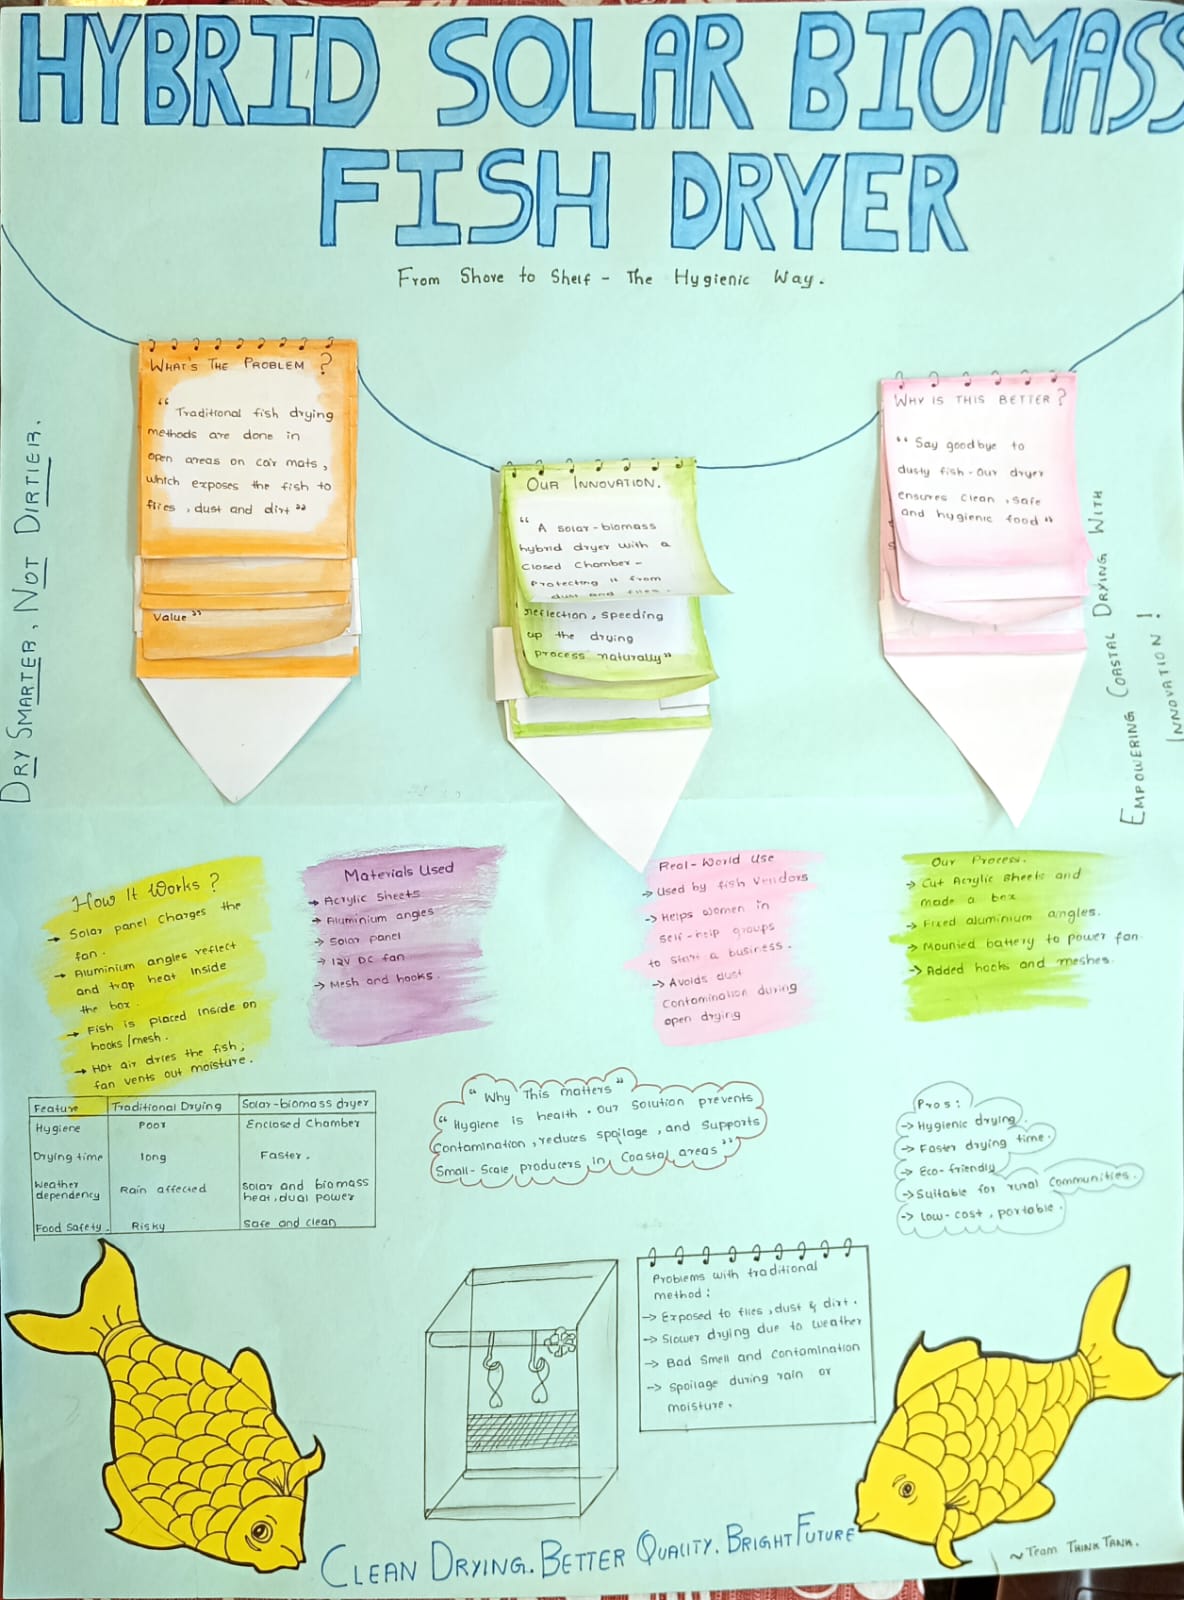 HYBRID SOLAR BIOMASS
FISH DRYER
From Shore to Shelf - The Hygienic Way.
DRY SMARTER, NOT DIRTIER.
WHAT'S THE PROBLEM ?
“ Traditional fish drying
methods are done in
open areas on coir mats,
which exposes the fish to
flies , dust and dirt ”
Value ”
OUR INNOVATION.
“ A solar-biomass
hybrid dryer with a
Closed Chamber -
Protecting it from
dust and flies.
reflection, speeding
up the drying
process naturally ”
WHY IS THIS BETTER ?
“ Say goodbye to
dusty fish - Our dryer
ensures clean , safe
and hygienic food ”
EMPOWERING COASTAL DRYING WITH
INNOVATION !
How It Works ?
→ Solar panel charges the
fan.
→ Aluminium angles reflect
and trap heat inside
the box.
→ Fish is placed inside on
hooks/mesh.
→ Hot air dries the fish;
fan vents out moisture.
Materials Used
→ Acrylic Sheets
→ Aluminium angles
→ Solar panel
→ 12V DC fan
→ Mesh and hooks.
Real-World Use
→ Used by fish vendors
→ Helps women in
self-help groups
to start a business.
→ Avoids dust
Contamination during
open drying
Our Process.
→ Cut Acrylic sheets and
made a box
→ Fixed aluminium angles.
→ Mounted battery to power fan.
→ Added hooks and meshes.
Feature Traditional Drying Solar-biomass dryer
Hygiene Poor Enclosed Chamber
Drying time long Faster.
Weather dependency Rain affected Solar and biomass heat, dual power
Food Safety. Risky Safe and clean
“ Why This matters ”
“ Hygiene is health . Our solution prevents
Contamination, reduces spoilage , and supports
Small-Scale producers in Coastal areas ”
Pros :
→ Hygienic drying.
→ Faster drying time.
→ Eco-friendly
→ Suitable for rural Communities.
→ Low-cost , portable.
Problems with traditional
method :
→ Exposed to flies , dust & dirt.
→ Slower drying due to weather
→ Bad Smell and Contamination
→ Spoilage during rain or
moisture.
CLEAN DRYING. BETTER QUALITY. BRIGHT FUTURE
~ Team THINK TANK.